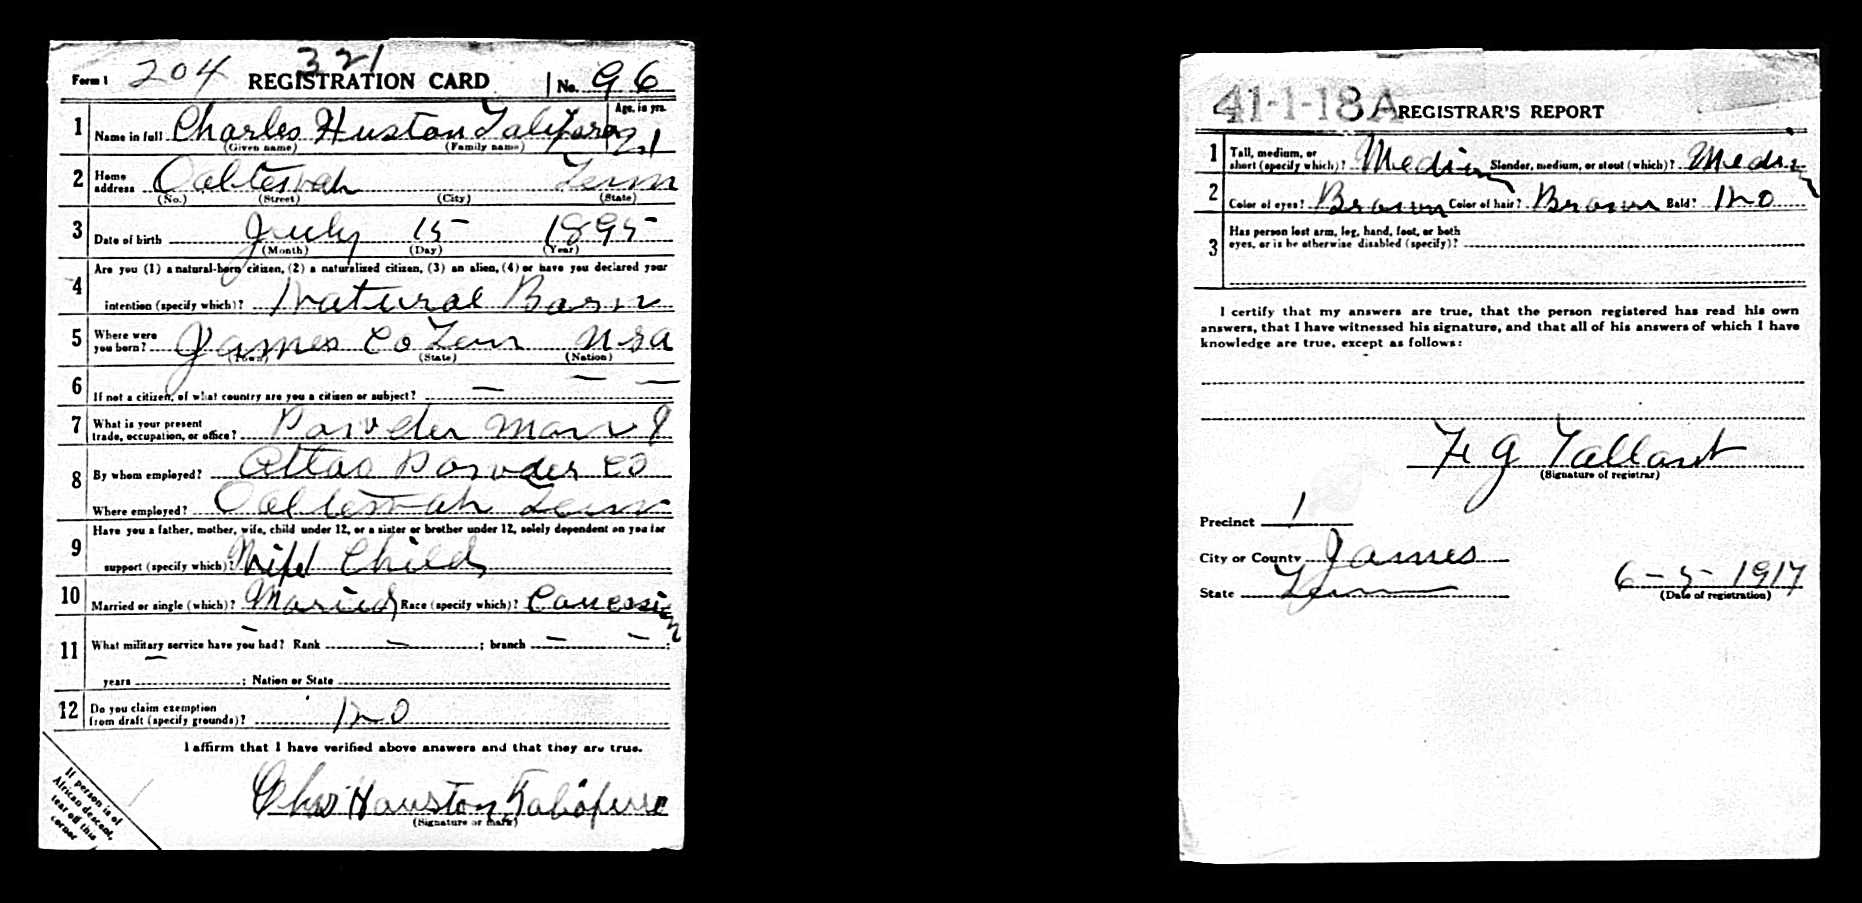 Form 1 204 321 REGISTRATION CARD No. 96
1 Name in full Charles Huston Age, in yrs. 21
(Given name) (Family name)
2 Home address Ooltewah Tenn
(No.) (Street) (City) (State)
3 Date of birth July 15 1895
(Month) (Day) (Year)
4 Are you (1) a natural-born citizen, (2) a naturalized citizen, (3) an alien, (4) or have you declared your
intention (specify which)? Natural Born
5 Where were you born? James Co Tenn USA
(Town) (State) (Nation)
6 If not a citizen, of what country are you a citizen or subject? — — —
7 What is your present trade, occupation, or office? Powder man
8 By whom employed? Atlas Powder Co
Where employed? Ooltewah Tenn
9 Have you a father, mother, wife, child under 12, or a sister or brother under 12, solely dependent on you for
support (specify which)? Wife Child
10 Married or single (which)? Married Race (specify which)? Caucasian
11 What military service have you had? Rank — ; branch — — ;
years — ; Nation or State
12 Do you claim exemption from draft (specify grounds)? no
I affirm that I have verified above answers and that they are true.
Chas Houston
(Signature or mark)
If person is of
African descent,
tear off this
corner
41-1-18 A REGISTRAR'S REPORT
1 Tall, medium, or short (specify which)? Medium Slender, medium, or stout (which)? Medium
2 Color of eyes? Brown Color of hair? Brown Bald? no
3 Has person lost arm, leg, hand, foot, or both
eyes, or is he otherwise disabled (specify)?
I certify that my answers are true, that the person registered has read his own
answers, that I have witnessed his signature, and that all of his answers of which I have
knowledge are true, except as follows:
G Tallant
(Signature of registrar)
Precinct 1
City or County James
State Tenn 6-5-1917
(Date of registration)